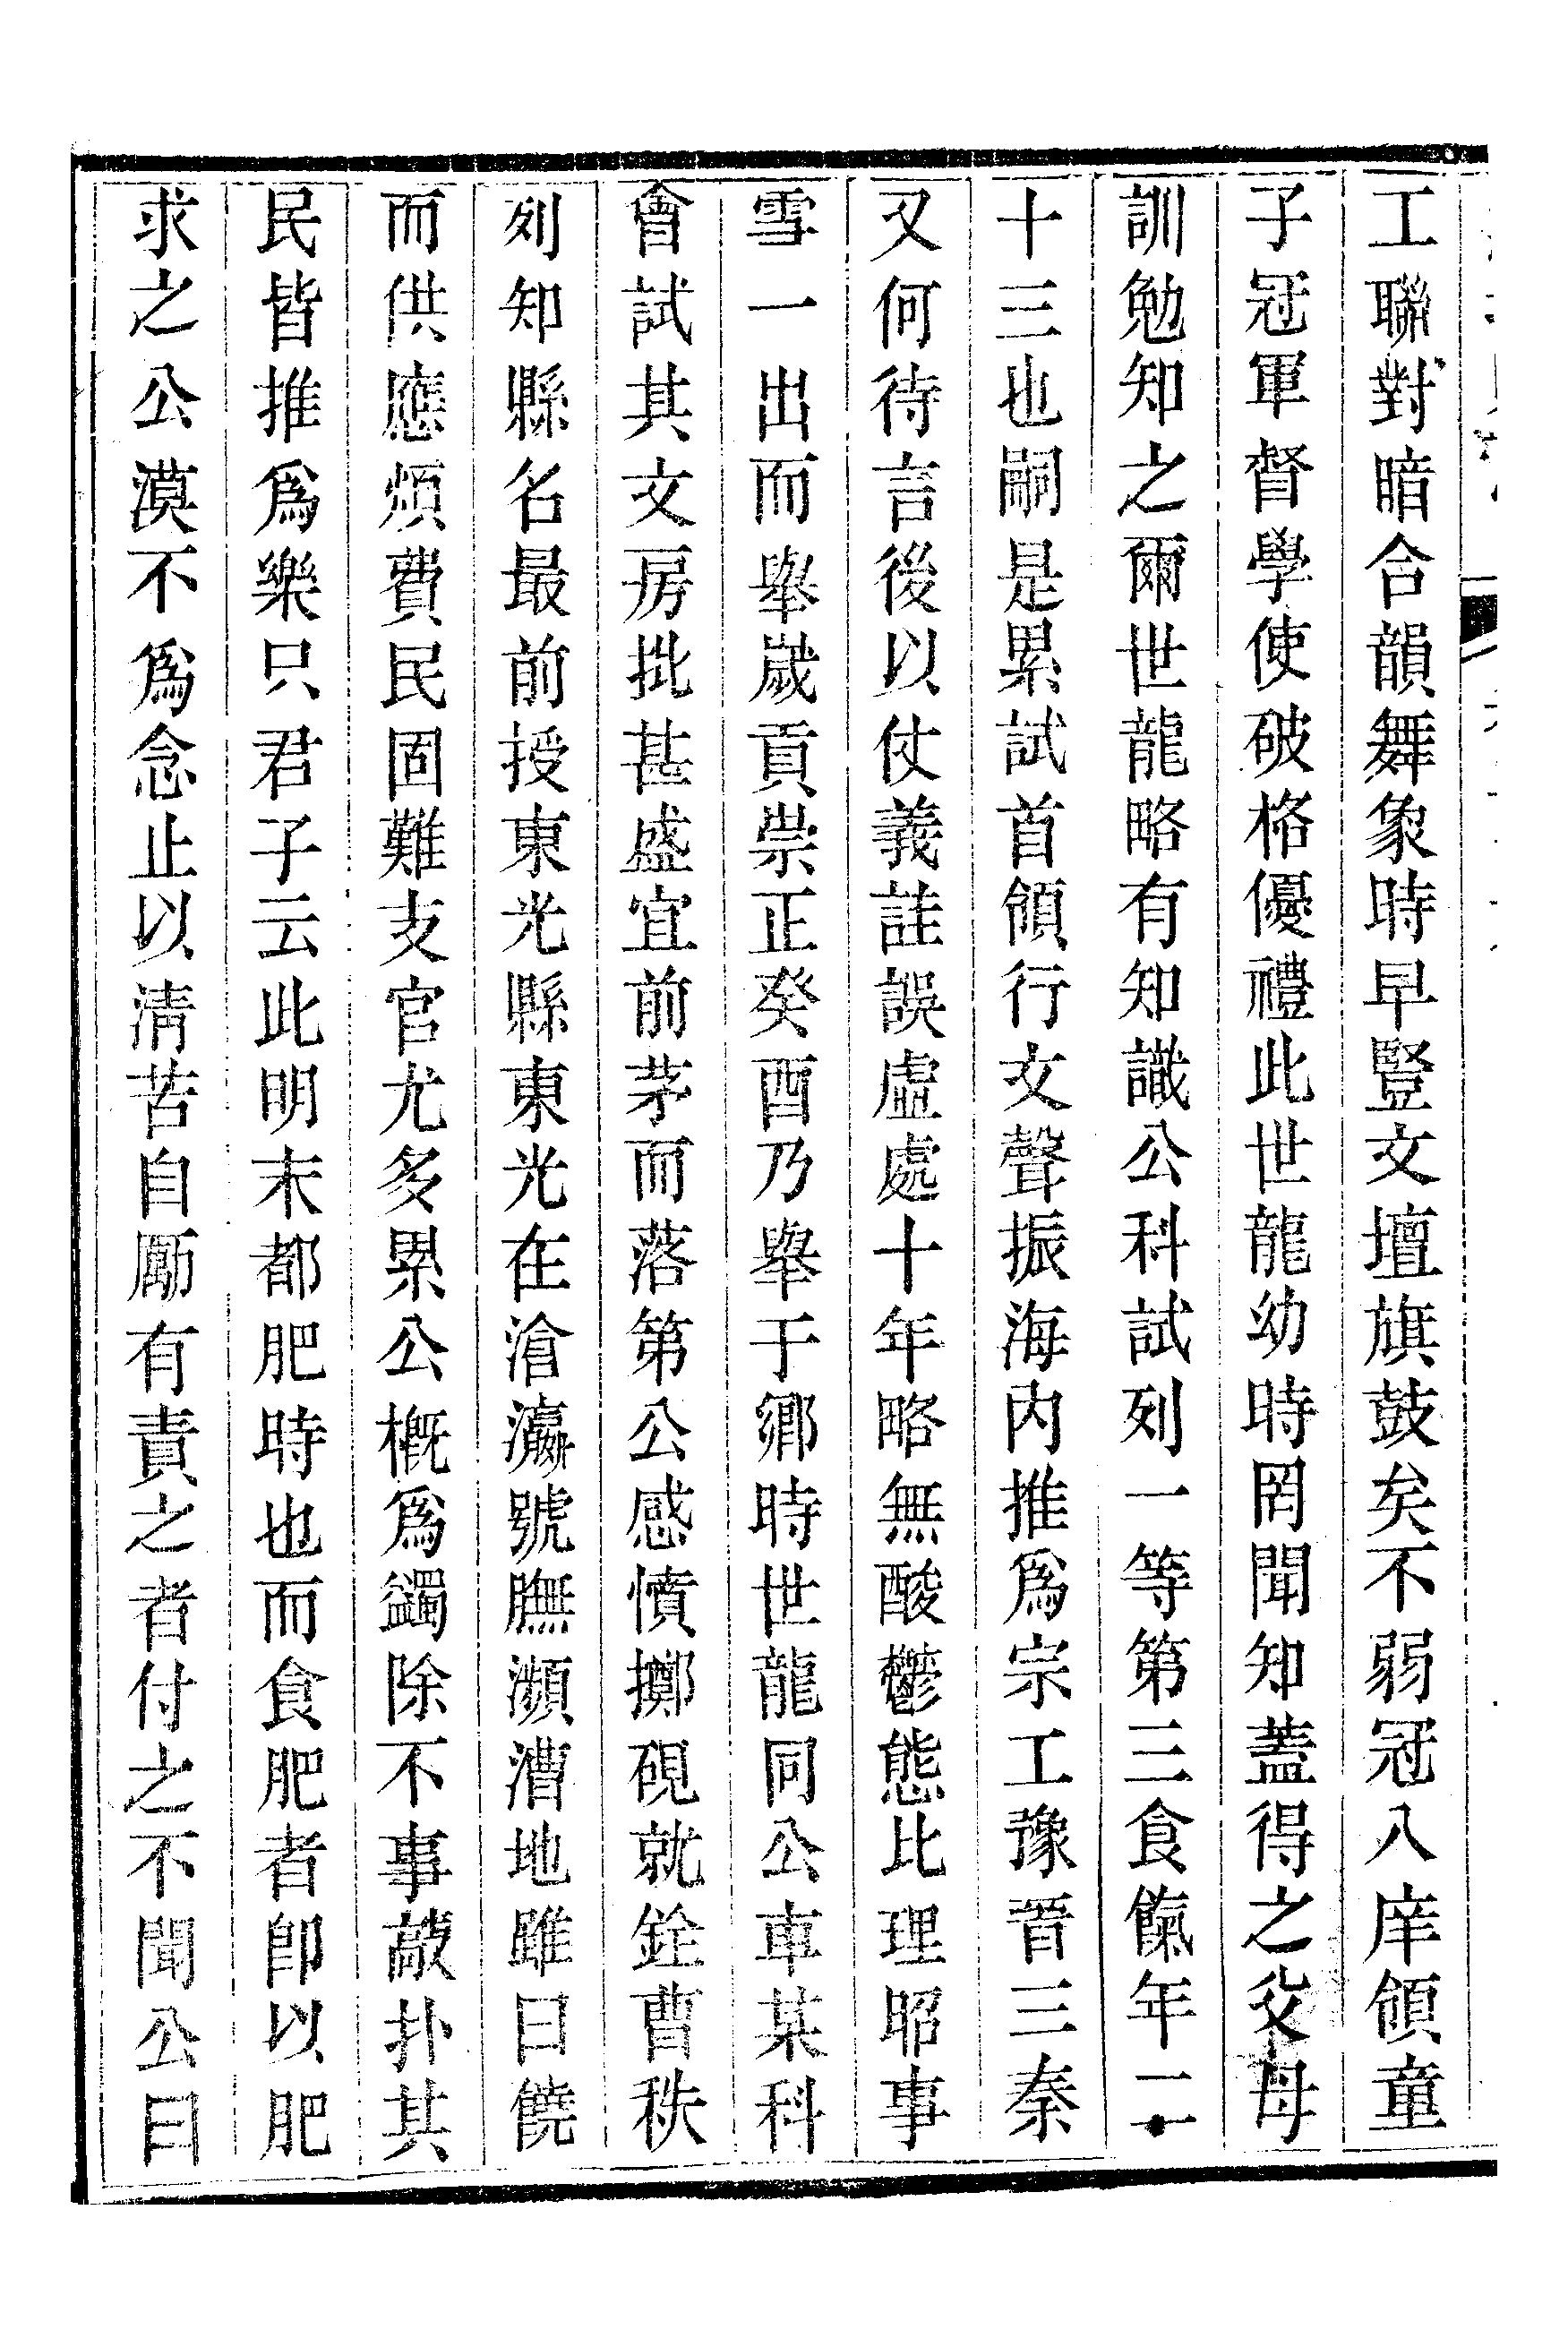 工聯對暗合韻舞象時早豎文壇旗鼓矣不弱冠入庠領童
子冠軍督學使破格優禮此世龍幼時罔聞知蓋得之父母
訓勉知之爾世龍略有知識公科試列一等第三食餼年二
十三也嗣是累試首領行文聲振海内推爲宗工豫晋三秦
又何待言後以仗義詿誤虛處十年略無酸鬱態比理昭事
雪一出而舉歲貢崇正癸酉乃舉于鄉時世龍同公車某科
會試其文房批甚盛宜前茅而落第公感憤擲硯就銓曹秩
列知縣名最前授東光縣東光在滄瀛號膴瀕漕地雖曰饒
而供應煩費民固難支官尤多累公概爲蠲除不事敲扑其
民皆推爲樂只君子云此明末都肥時也而食肥者卽以肥
求之公漠不爲念止以清苦自勵有責之者付之不聞公曰